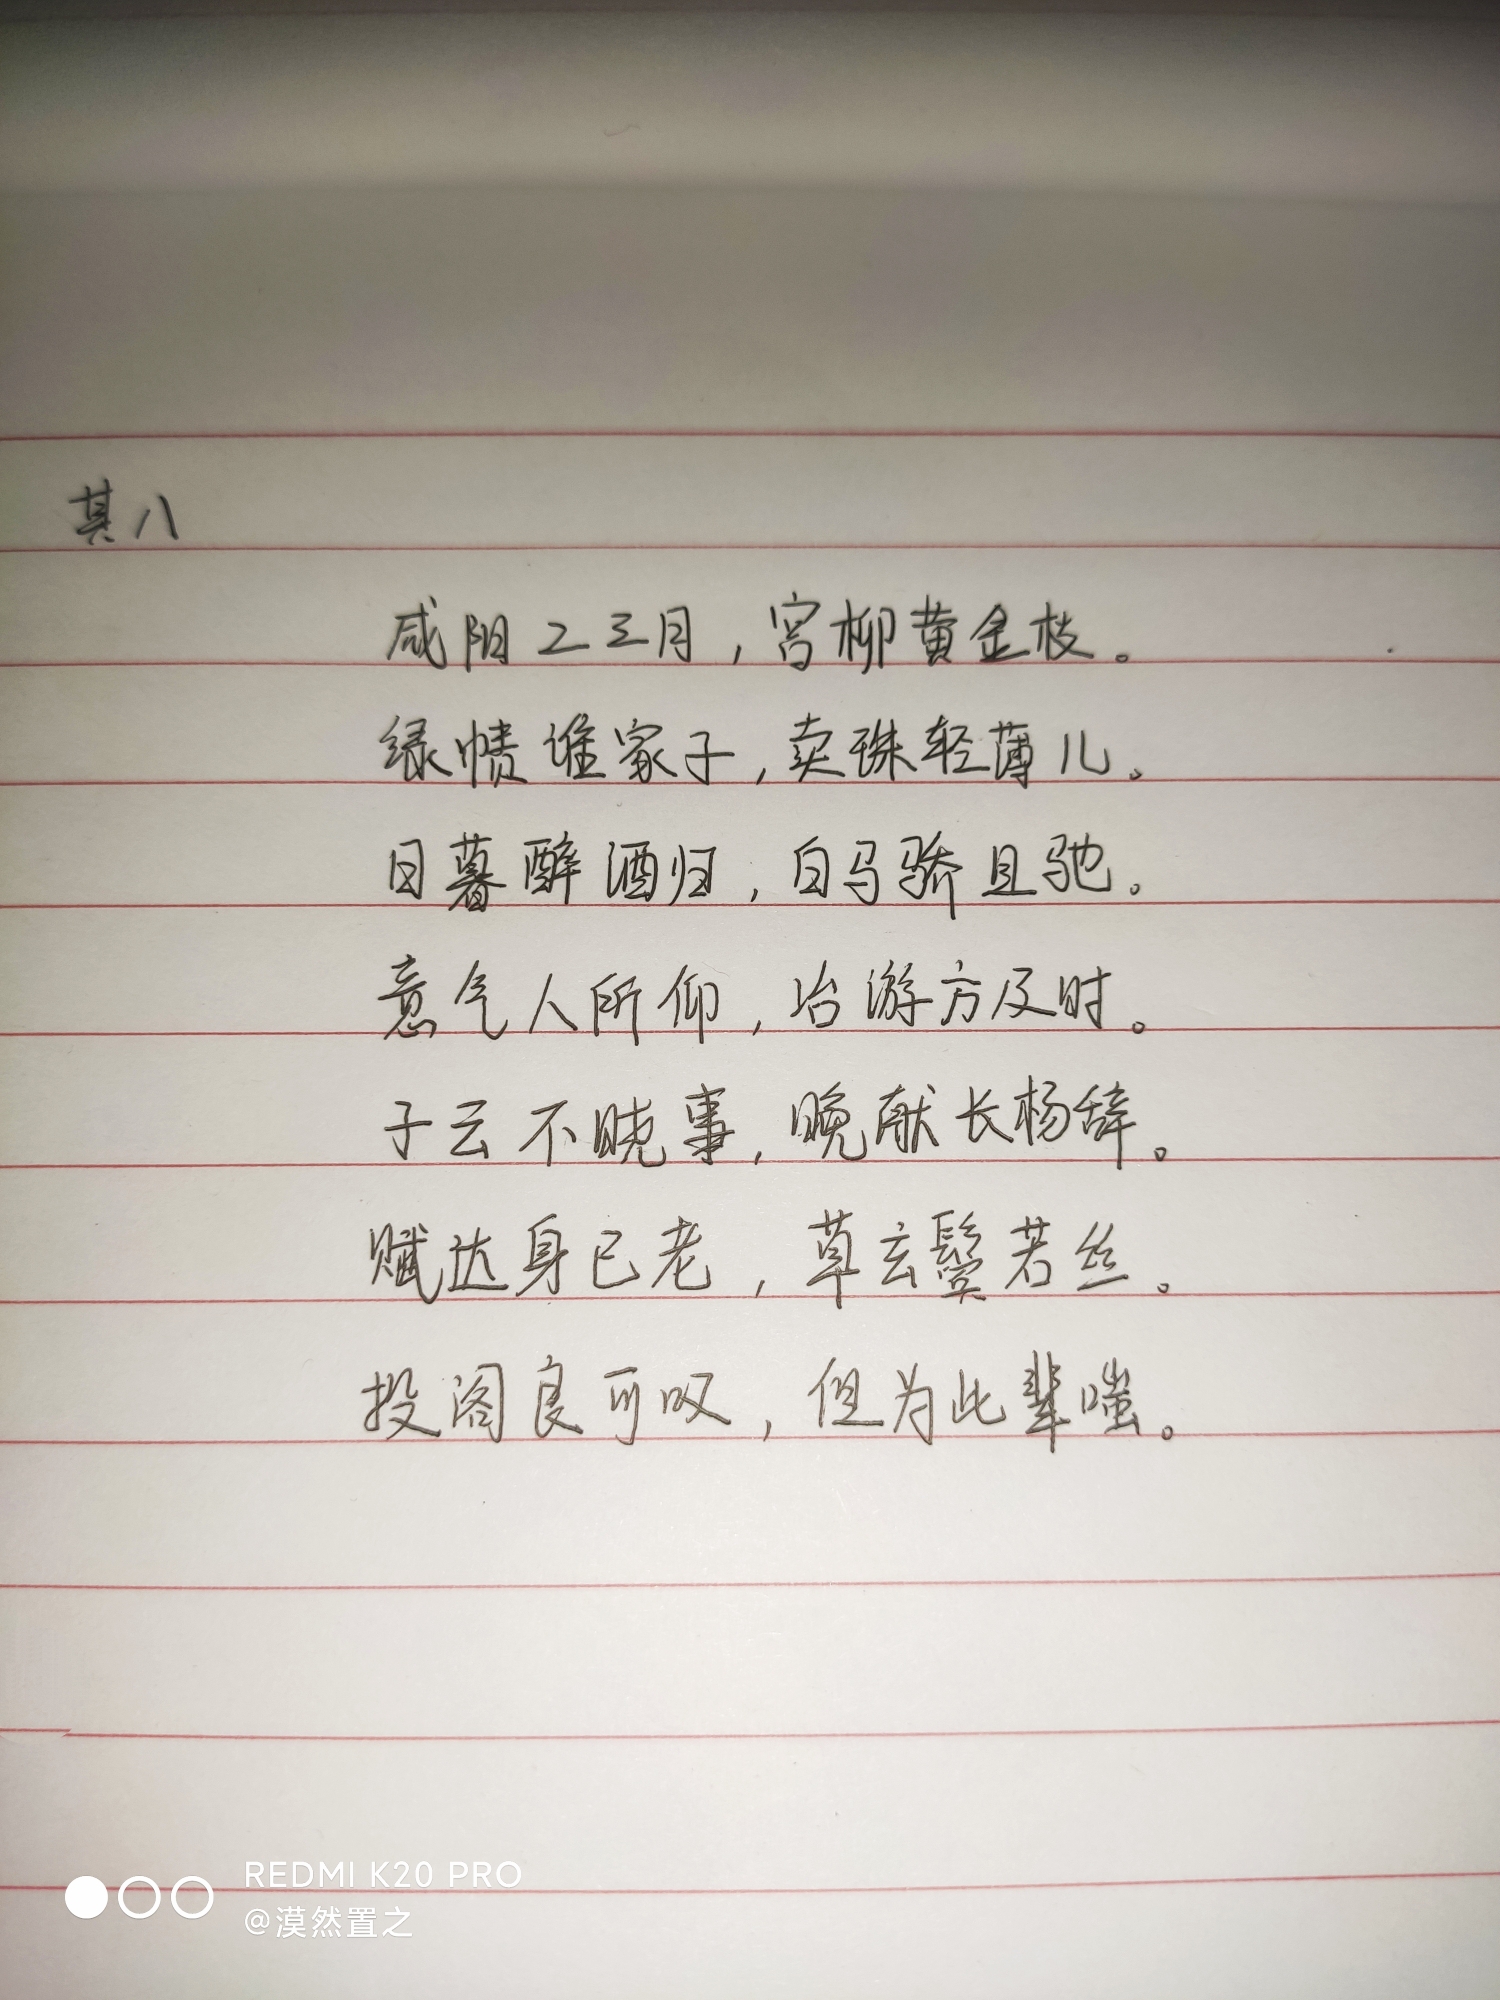 其八
咸阳二三月，宫柳黄金枝。
绿帻谁家子，卖珠轻薄儿。
日暮醉酒归，白马骄且驰。
意气人所仰，冶游方及时。
子云不晓事，晚献长杨辞。
赋达身已老，草玄鬓若丝。
投阁良可叹，但为此辈嗤。
REDMI K20 PRO
@漠然置之